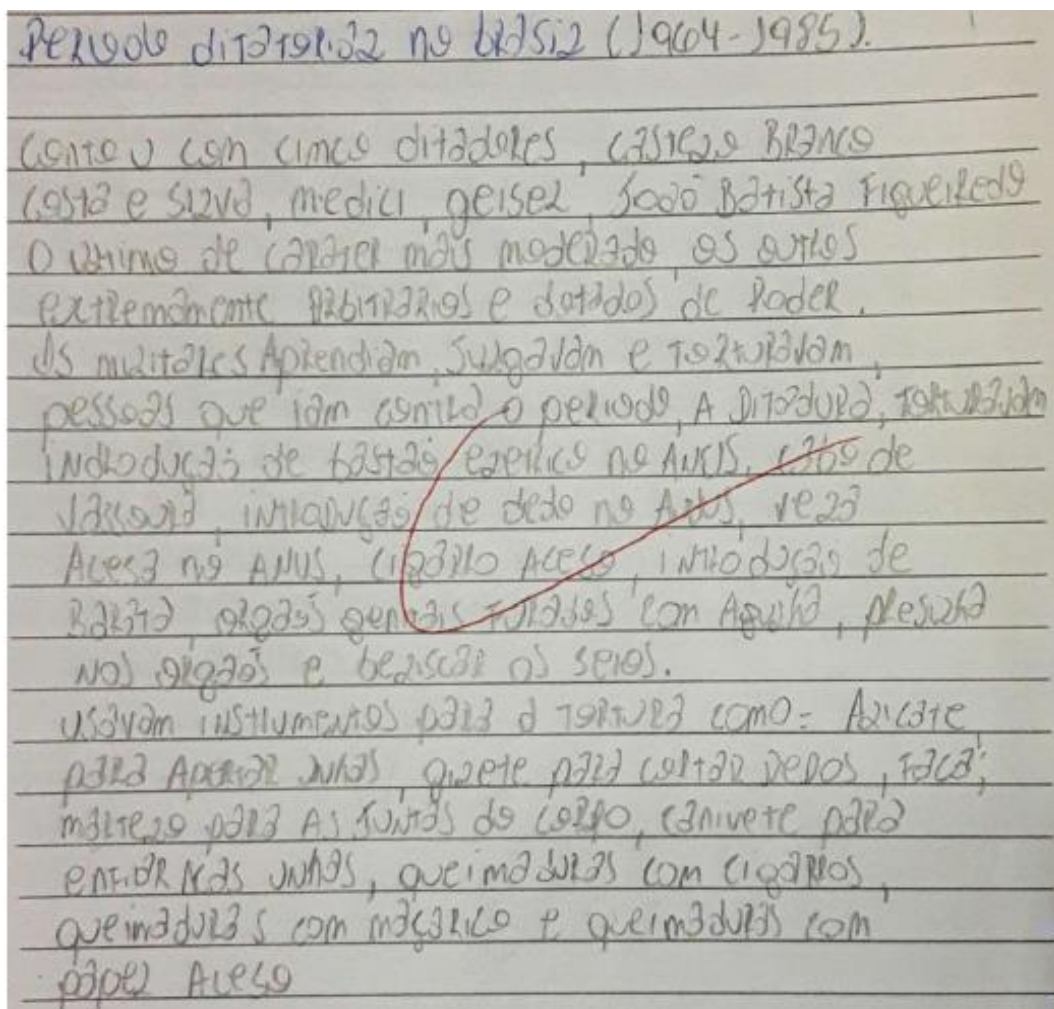 Periodo ditatorial no brasil (1964-1985).
Contou com cinco ditadores, Castelo Branco
Costa e Silva, medici, geisel, João Batista Figueiredo
O ultimo de carater mais moderado os outros
extremamente arbitrarios e dotados de Poder.
Os militares Aprendiam, Julgavam e Torturavam,
pessoas que iam contra o periodo, A Ditadura, Torturavam
introdução de bastão eletrico no ANUS, cabo de
vassoura, introdução de dedo no Anus, vela
Acesa no ANUS, Cigarro Aceso, introdução de
Barata, orgãos genitais furados com Agulha,
nos orgãos e beliscar os seios.
usavam instrumentos para a Tortura como= Alicate
para Apertar unhas, gilete para cortar Dedos, faca;
martelo para As Juntas do corpo, canivete para
enfiar Nas unhas, queimaduras com cigarros,
queimaduras com maçarico e queimaduras com
papel Aceso